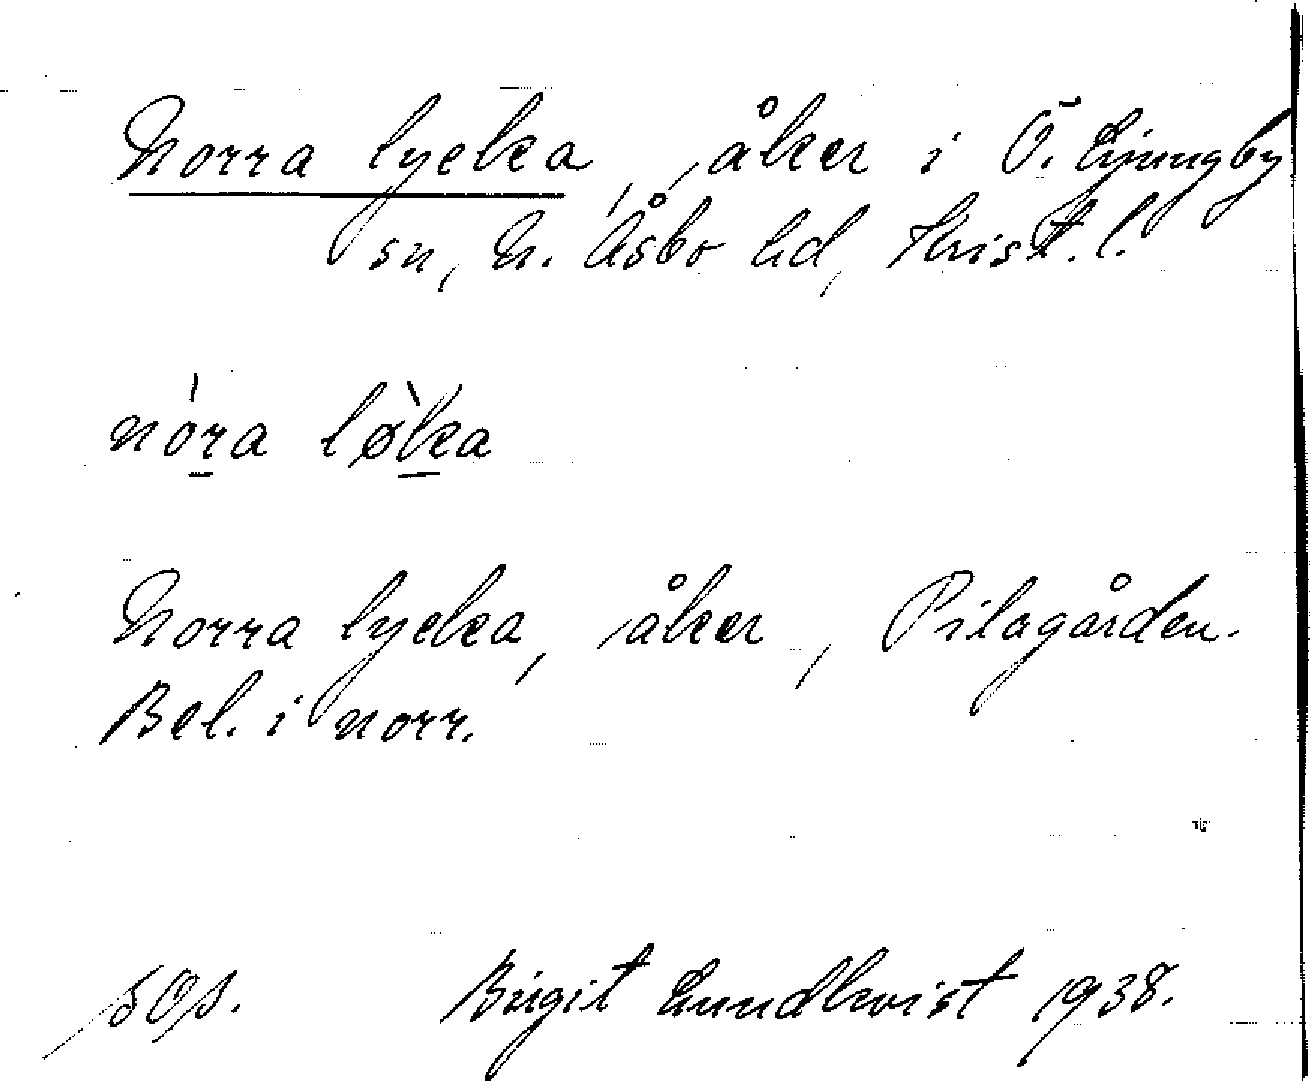 Norra lycka, åker i Ö. Ljungby
sn, N. Åsbo hd, Krist. l.
nóra løka
Norra lycka, åker, Pilagården.
Bel. i norr.
Birgit Lundkvist 1938.